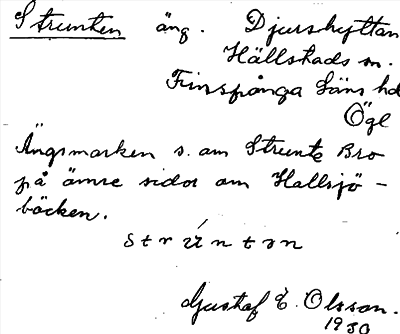 Strunten äng. Djurshyttan
Hällstads sn.
Finspånga Läns hd
Ögl
Ängsmarken s. om Strunts Bro
på ömse sidor om Hallsjö-
bäcken.
strúntən
Gustaf E. Olsson.
1930